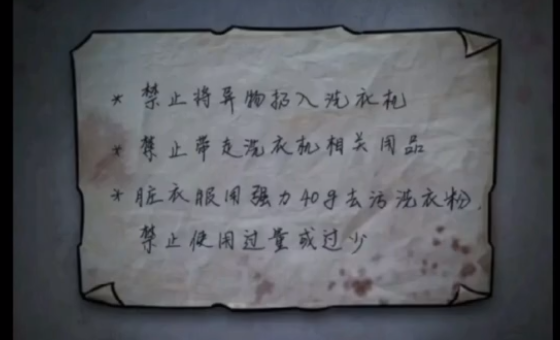 * 禁止将异物扔入洗衣机
* 禁止带走洗衣机相关用品
* 脏衣服用强力40g去污洗衣粉,
禁止使用过量或过少